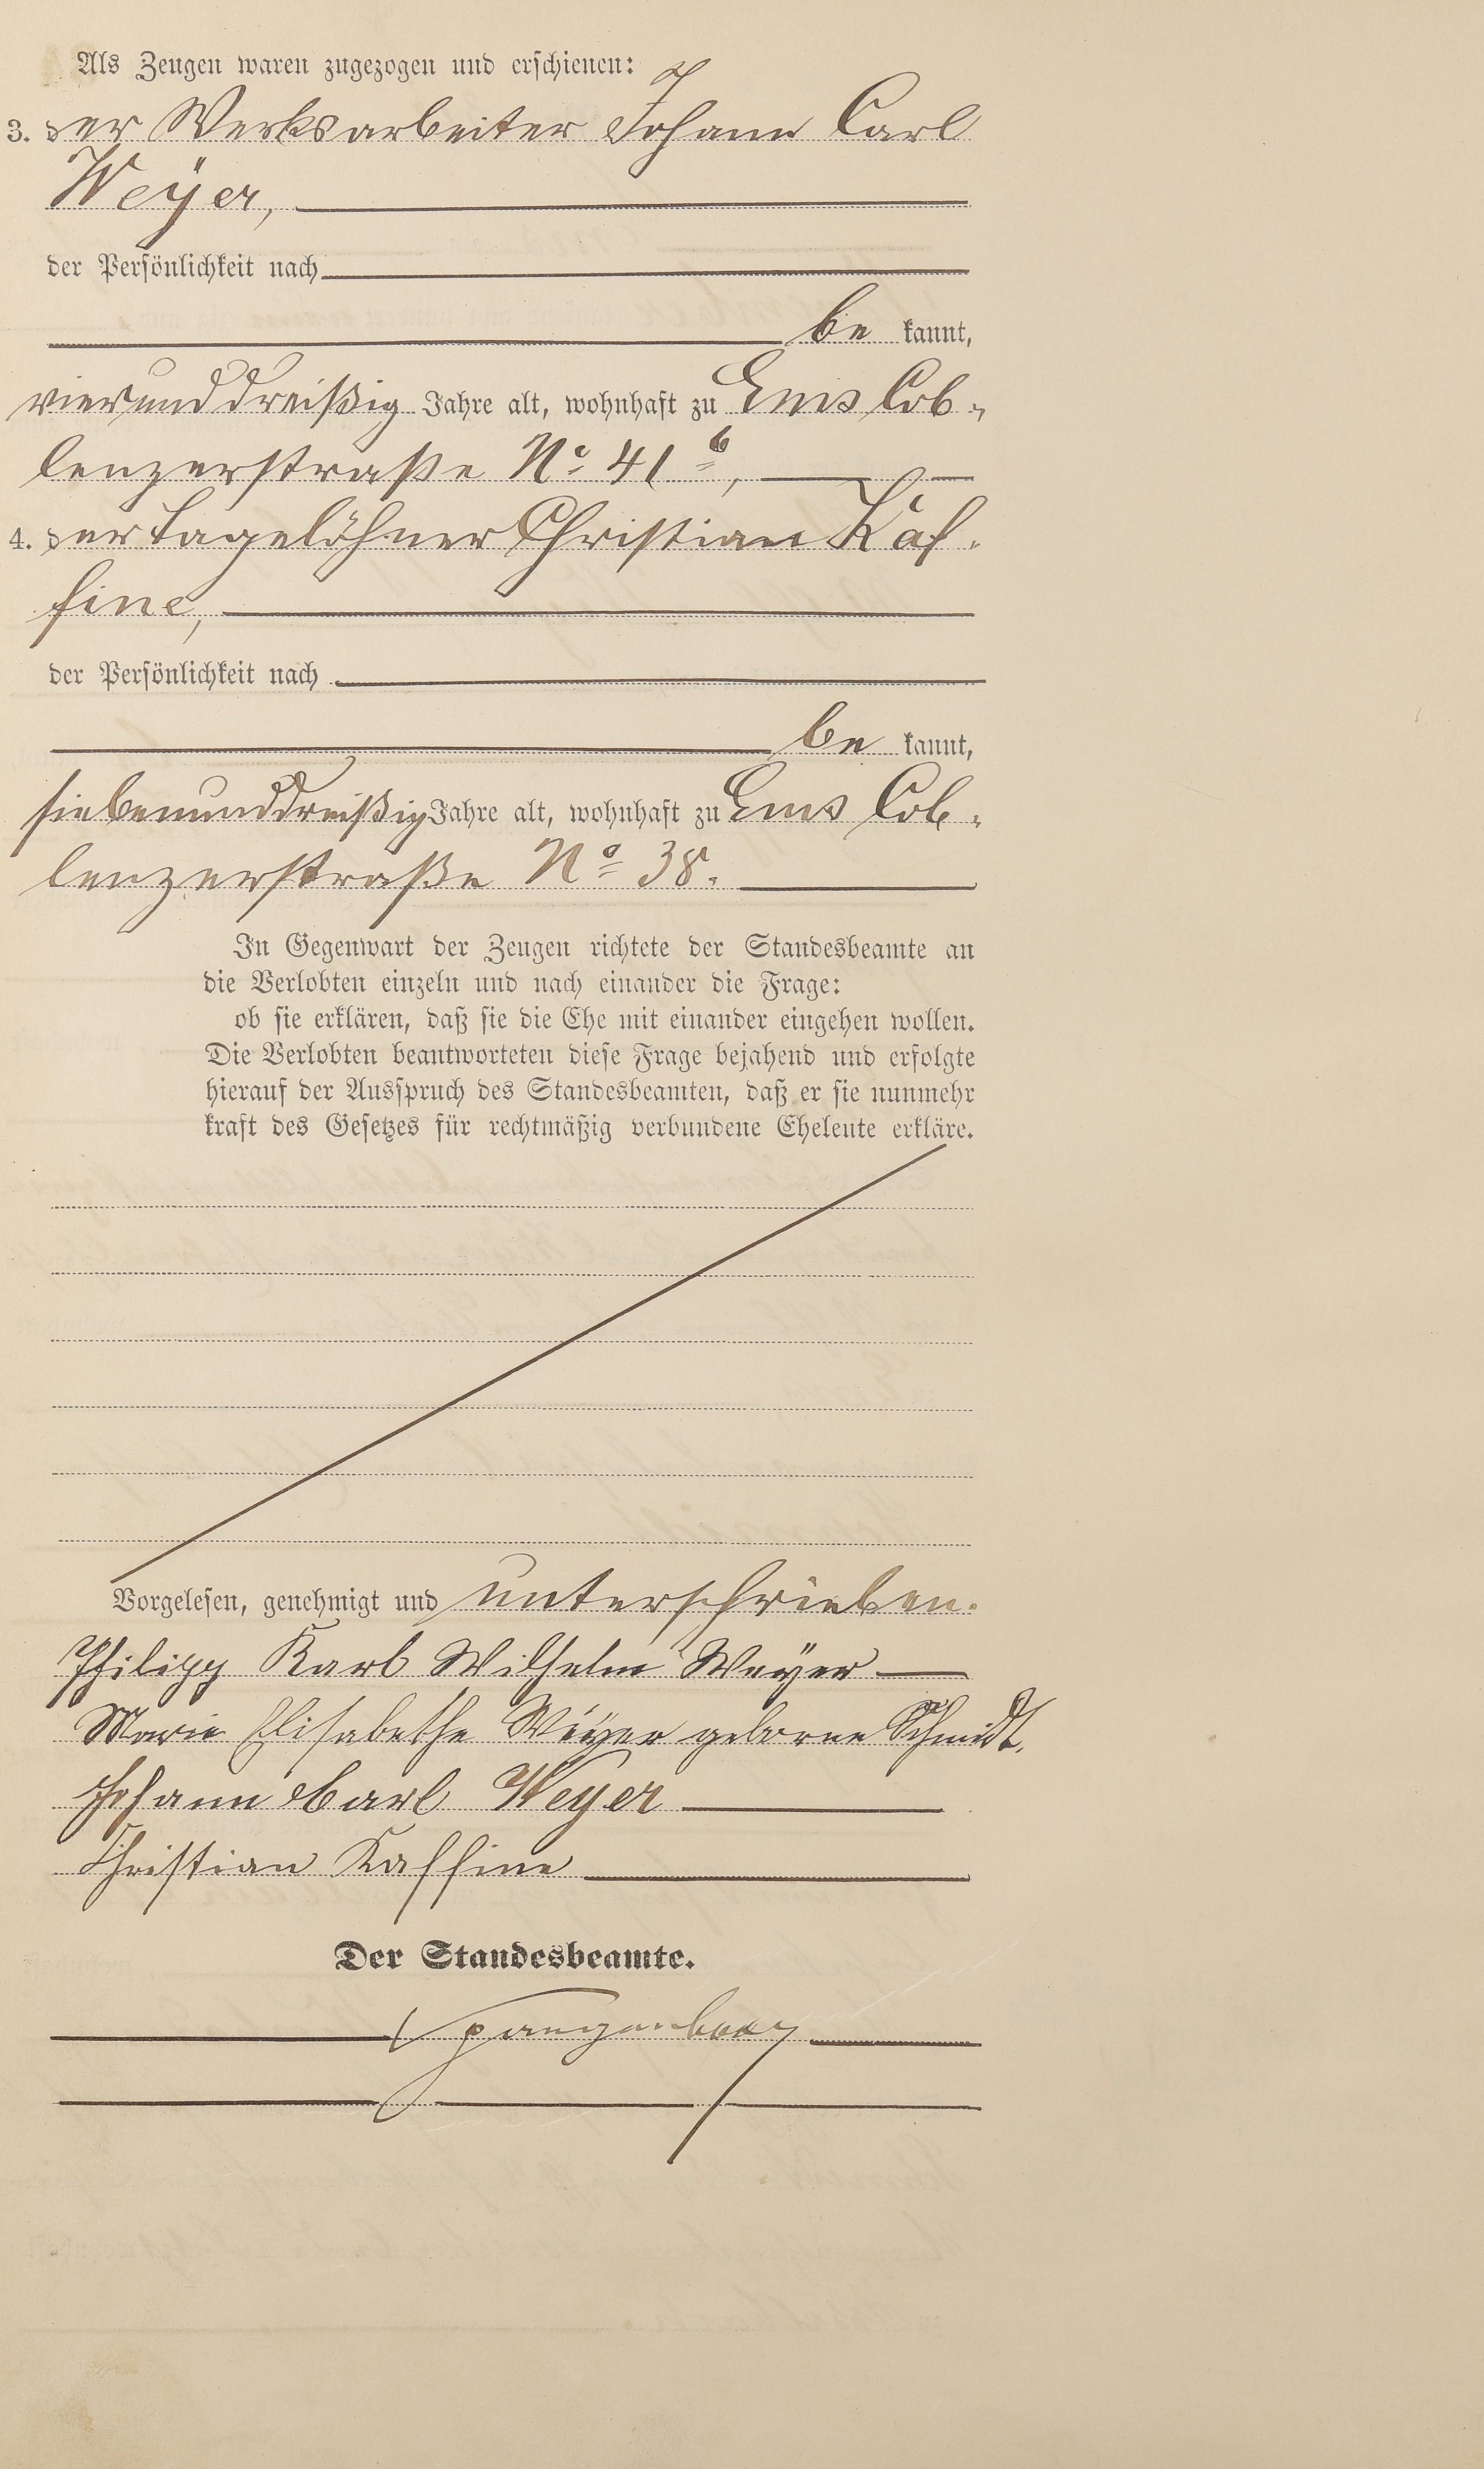 Als Zeugen waren zugezogen und erschienen:
3. der Werksarbeiter Johann Carl
Weÿer,
der Persönlichkeit nach
be kannt,
vierunddreißig Jahre alt, wohnhaft zu Ems Cob-
lenzerstraße No 41 b,
4. der Tagelöhner Christian Kaf-
fine,
der Persönlichkeit nach
be kannt,
siebenunddreißig Jahre alt, wohnhaft zu Ems Cob-
lenzerstraße No 38.
In Gegenwart der Zeugen richtete der Standesbeamte an
die Verlobten einzeln und nach einander die Frage:
ob sie erklären, daß sie die Ehe mit einander eingehen wollen.
Die Verlobten beantworteten diese Frage bejahend und erfolgte
hierauf der Ausspruch des Standesbeamten, daß er sie nunmehr
kraft des Gesetzes für rechtmäßig verbundene Eheleute erkläre.
Vorgelesen, genehmigt und unterschrieben.
Philipp Karl Wilhelm Weÿer
Marie Elisabethe Weÿer geborne Schmidt.
Johann Carl Weyer
Christian Kaffine
Der Standesbeamte.
Spangenberg